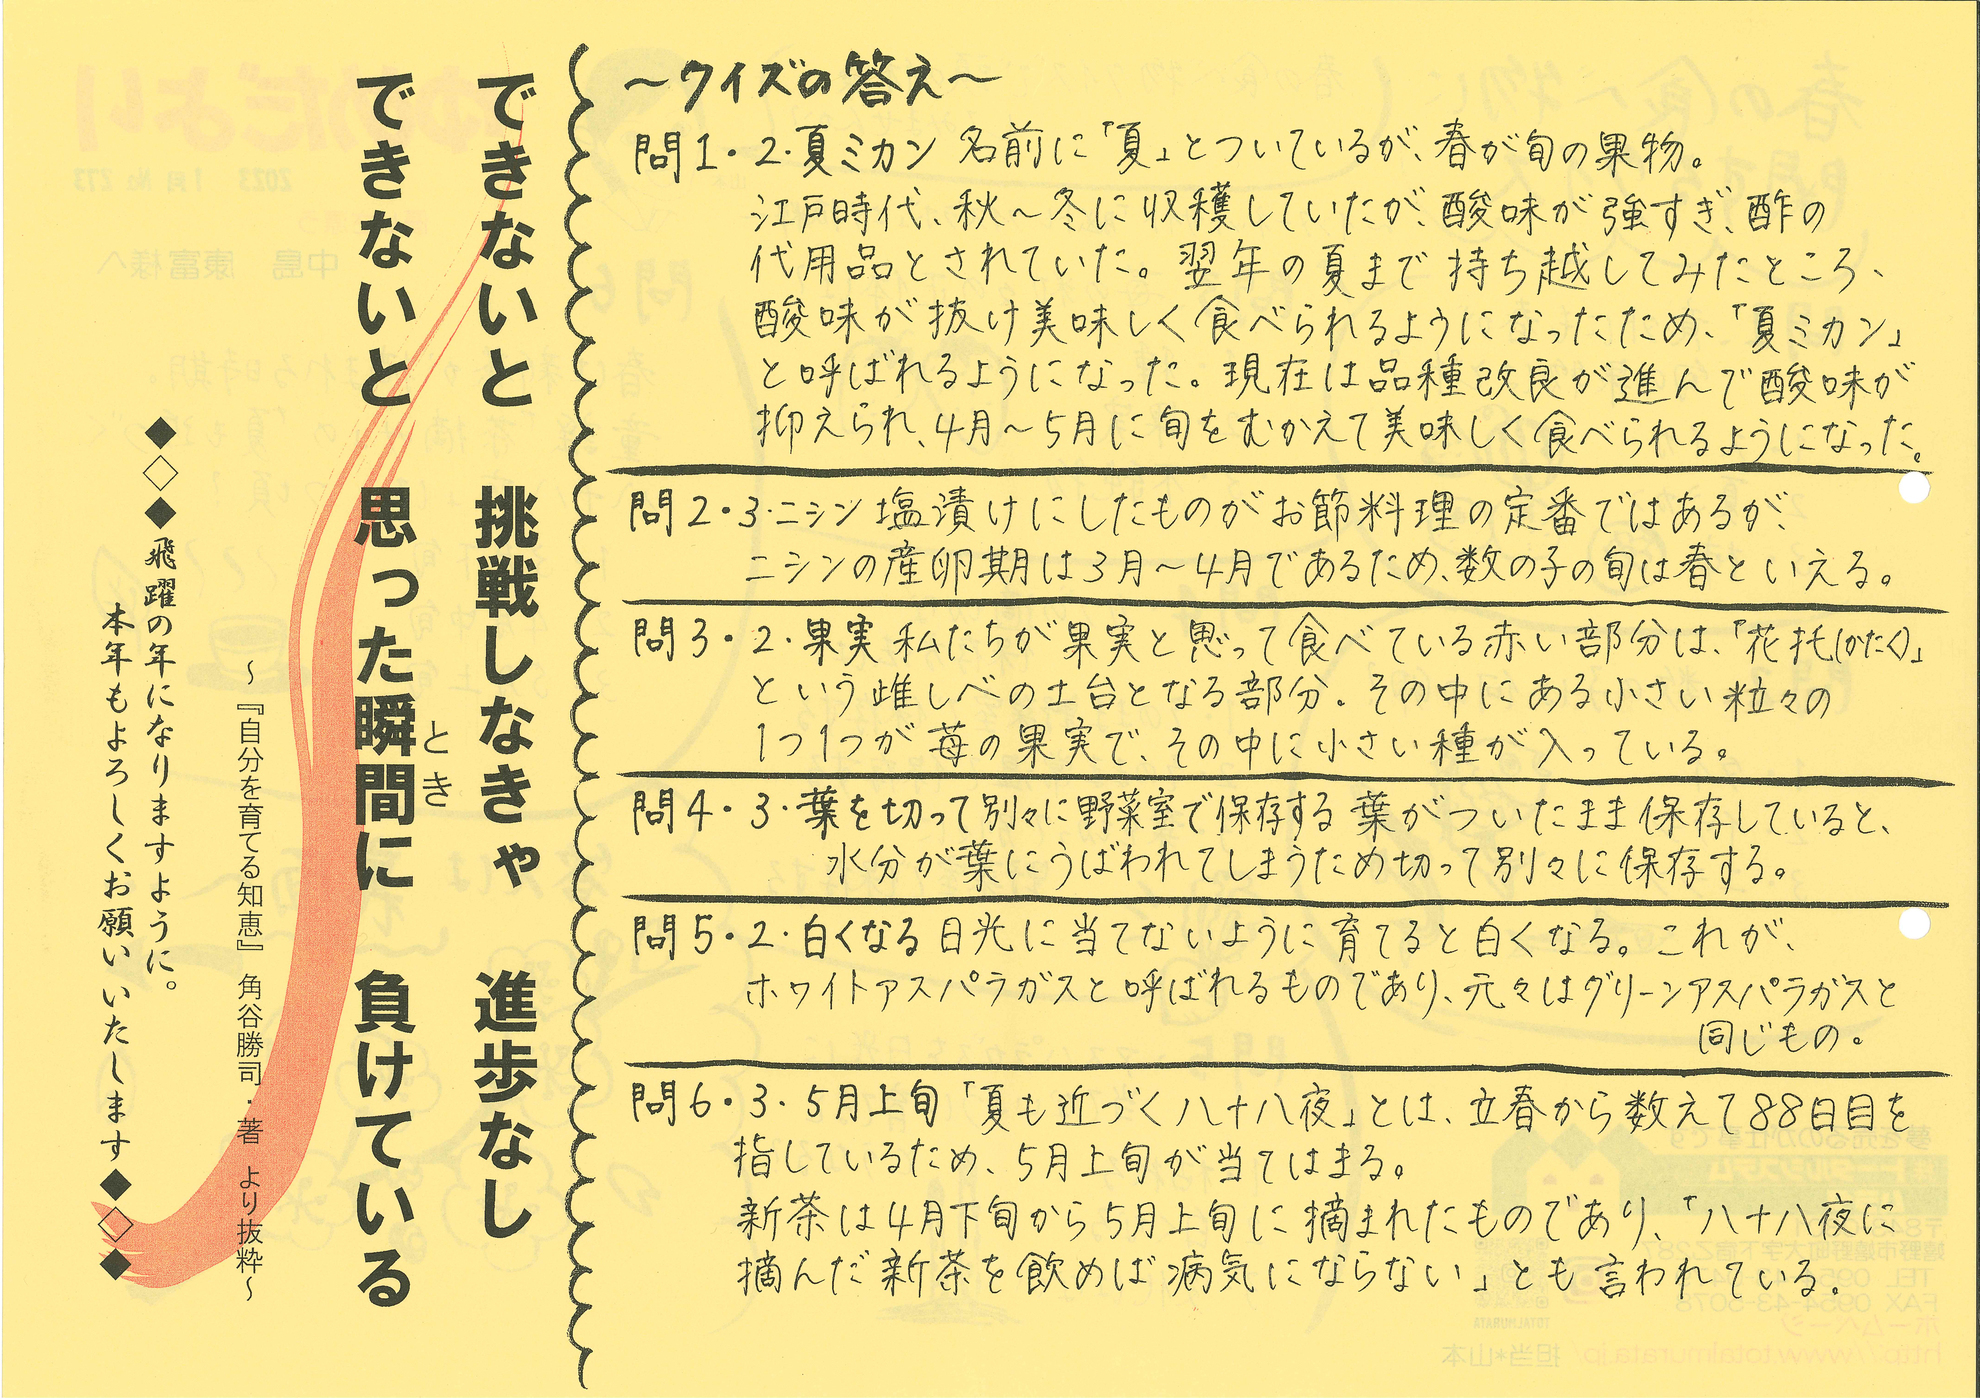 ～クイズの答え～
問1・2・夏ミカン 名前に「夏」とついているが、春が旬の果物。
江戸時代、秋～冬に収穫していたが、酸味が強すぎ、酢の
代用品とされていた。翌年の夏まで持ち越してみたところ、
酸味が抜け美味しく食べられるようになったため、「夏ミカン」
と呼ばれるようになった。現在は品種改良が進んで酸味が
抑えられ、4月～5月に旬をむかえて美味しく食べられるようになった。
問2・3・ニシン 塩漬けにしたものがお節料理の定番ではあるが、
ニシンの産卵期は3月～4月であるため、数の子の旬は春といえる。
問3・2・果実 私たちが果実と思って食べている赤い部分は、「花托(かたく)」
という雌しべの土台となる部分。その中にある小さい粒々の
1つ1つが苺の果実で、その中に小さい種が入っている。
問4・3・葉を切って別々に野菜室で保存する 葉がついたまま保存していると、
水分が葉にうばわれてしまうため切って別々に保存する。
問5・2・白くなる 日光に当てないように育てると白くなる。これが、
ホワイトアスパラガスと呼ばれるものであり、元々はグリーンアスパラガスと
同じもの。
問6・3・5月上旬 「夏も近づく八十八夜」とは、立春から数えて88日目を
指しているため、5月上旬が当てはまる。
新茶は4月下旬から5月上旬に摘まれたものであり、「八十八夜に
摘んだ新茶を飲めば病気にならない」とも言われている。
できないと 挑戦しなきゃ 進歩なし
できないと 思った瞬間に 負けている
とき
～『自分を育てる知恵』 角谷勝司・著 より抜粋～
◆◇◆飛躍の年になりますように。
本年もよろしくお願いいたします◆◇◆